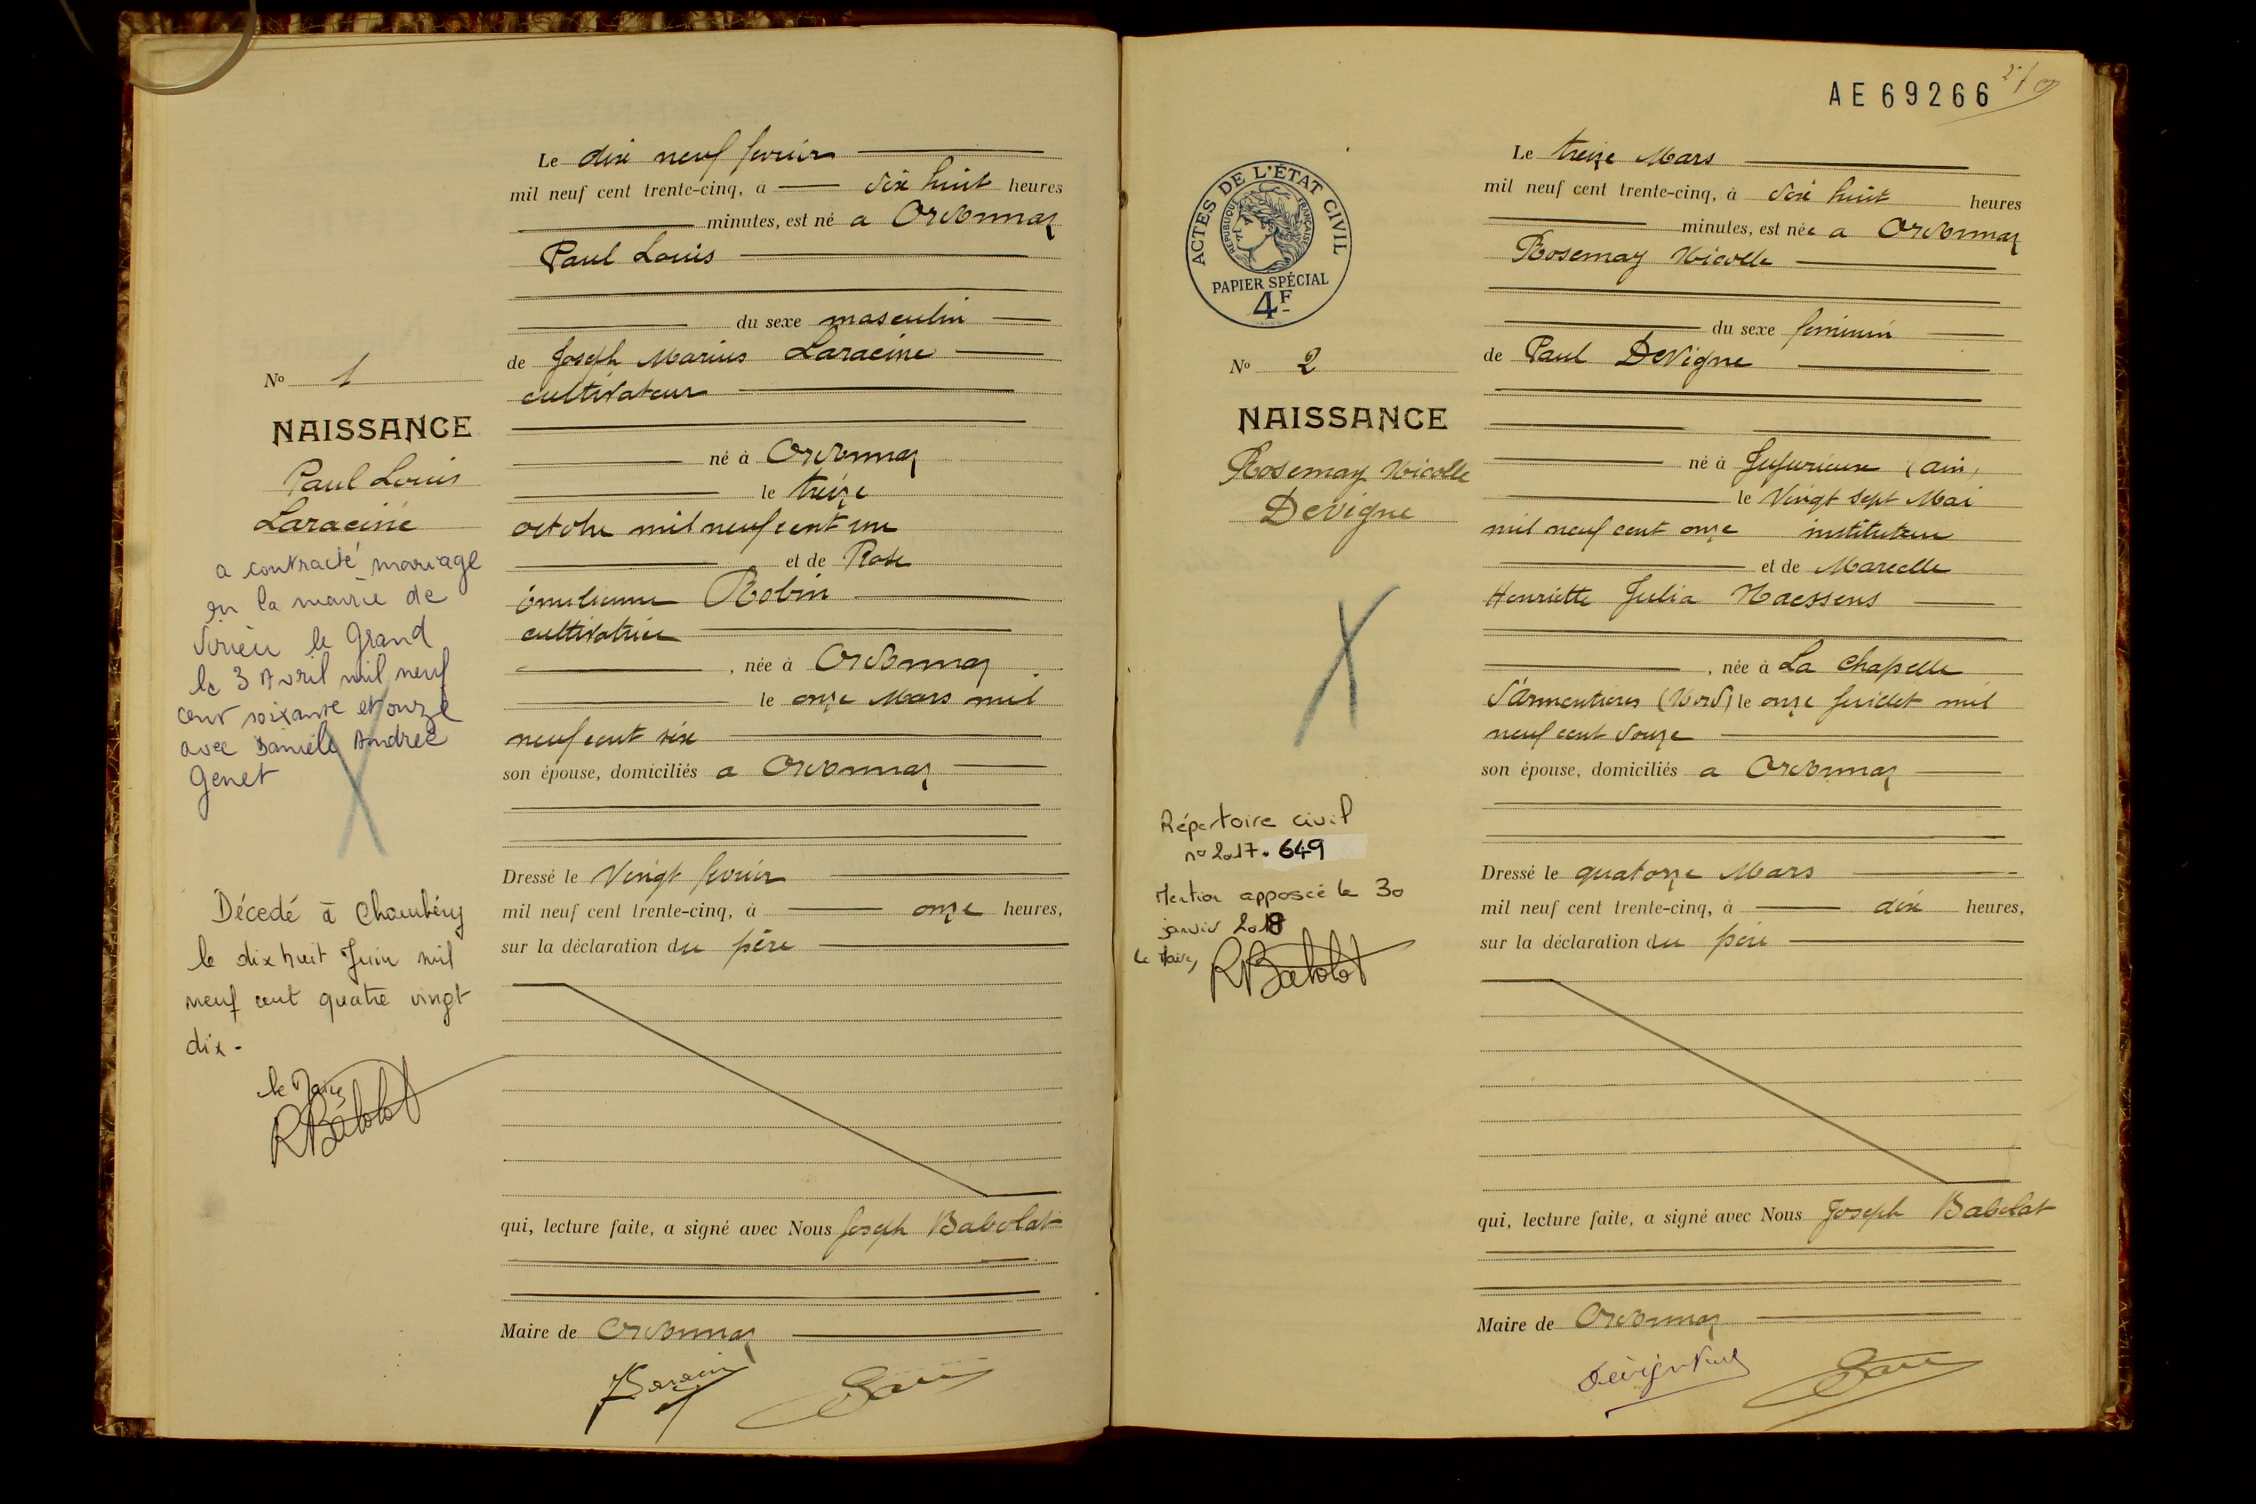 Le dix neuf fevrier
mil neuf cent trente-cinq, à dix huit heures
minutes, est né a Ordonnaz
Paul Louis
du sexe masculin
de Joseph Marius Laracine
cultivateur
né à Ordonnaz
le treize
octobre mil neuf cent un
et de Rose
émilienne Robin
cultivatrice
, née à Ordonnaz
le onze Mars mil
neuf cent six
son épouse, domiciliés a Ordonnaz
Dressé le Vingt fevrier
mil neuf cent trente-cinq, à onze heures,
sur la déclaration du père
qui, lecture faite, a signé avec Nous Joseph Babolat
Maire de Ordonnaz
No 1
NAISSANCE
Paul Louis
Laracine
a contracté mariage
en la mairie de
Virieu le Grand
le 3 Avril mil neuf
cent soixante et onze
avec Danièle Andrée
Genet
Décedé à Chambéry
le dix huit Juin mil
neuf cent quatre vingt
dix-
le Maire
AE69266
ACTES DE L'ÉTAT CIVIL
RÉPUBLIQUE FRANÇAISE
PAPIER SPÉCIAL
4F
Le treize Mars
mil neuf cent trente-cinq, à dix huit heures
minutes, est née a Ordonnaz
Rosemay Nicolle
du sexe feminin
de Paul Devigne
né à Jujurieux (ain)
le Vingt sept Mai
mil neuf cent onze instituteur
et de Marcelle
Henriette Julia Naessens
, née à La Chapelle
d'Armentieres (Nord) le onze Juillet mil
neuf cent douze
son épouse, domiciliés a Ordonnaz
Dressé le quatorze Mars
mil neuf cent trente-cinq, à dix heures,
sur la déclaration du père
qui, lecture faite, a signé avec Nous Joseph Babolat
Maire de Ordonnaz
No 2
NAISSANCE
Rosemay Nicolle
Devigne
Répertoire civil
no 2017. 649
Mention apposée le 30
janvier 2018
Le Maire,